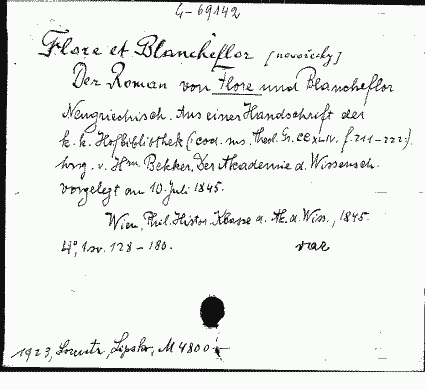 4-69142
Flore et Blancheflor [novořecky]
Der Roman von Flore und Blancheflor
Neugriechisch. Aus einer Handschrift der
k. k. Hofbibliothek (: cod. ms. theol. Gr. CCXLIV. f. 211-222:).
hrsg. v. Hrn Bekker, Der Akademie d. Wissensch.
vorgelegt am 10. Juli 1845.
Wien, Phil. Histor. Klasse d. Ak. d. Wiss., 1845.
4°, 1 sv. 128-180. vaz
1923, Lipsko, M 4800